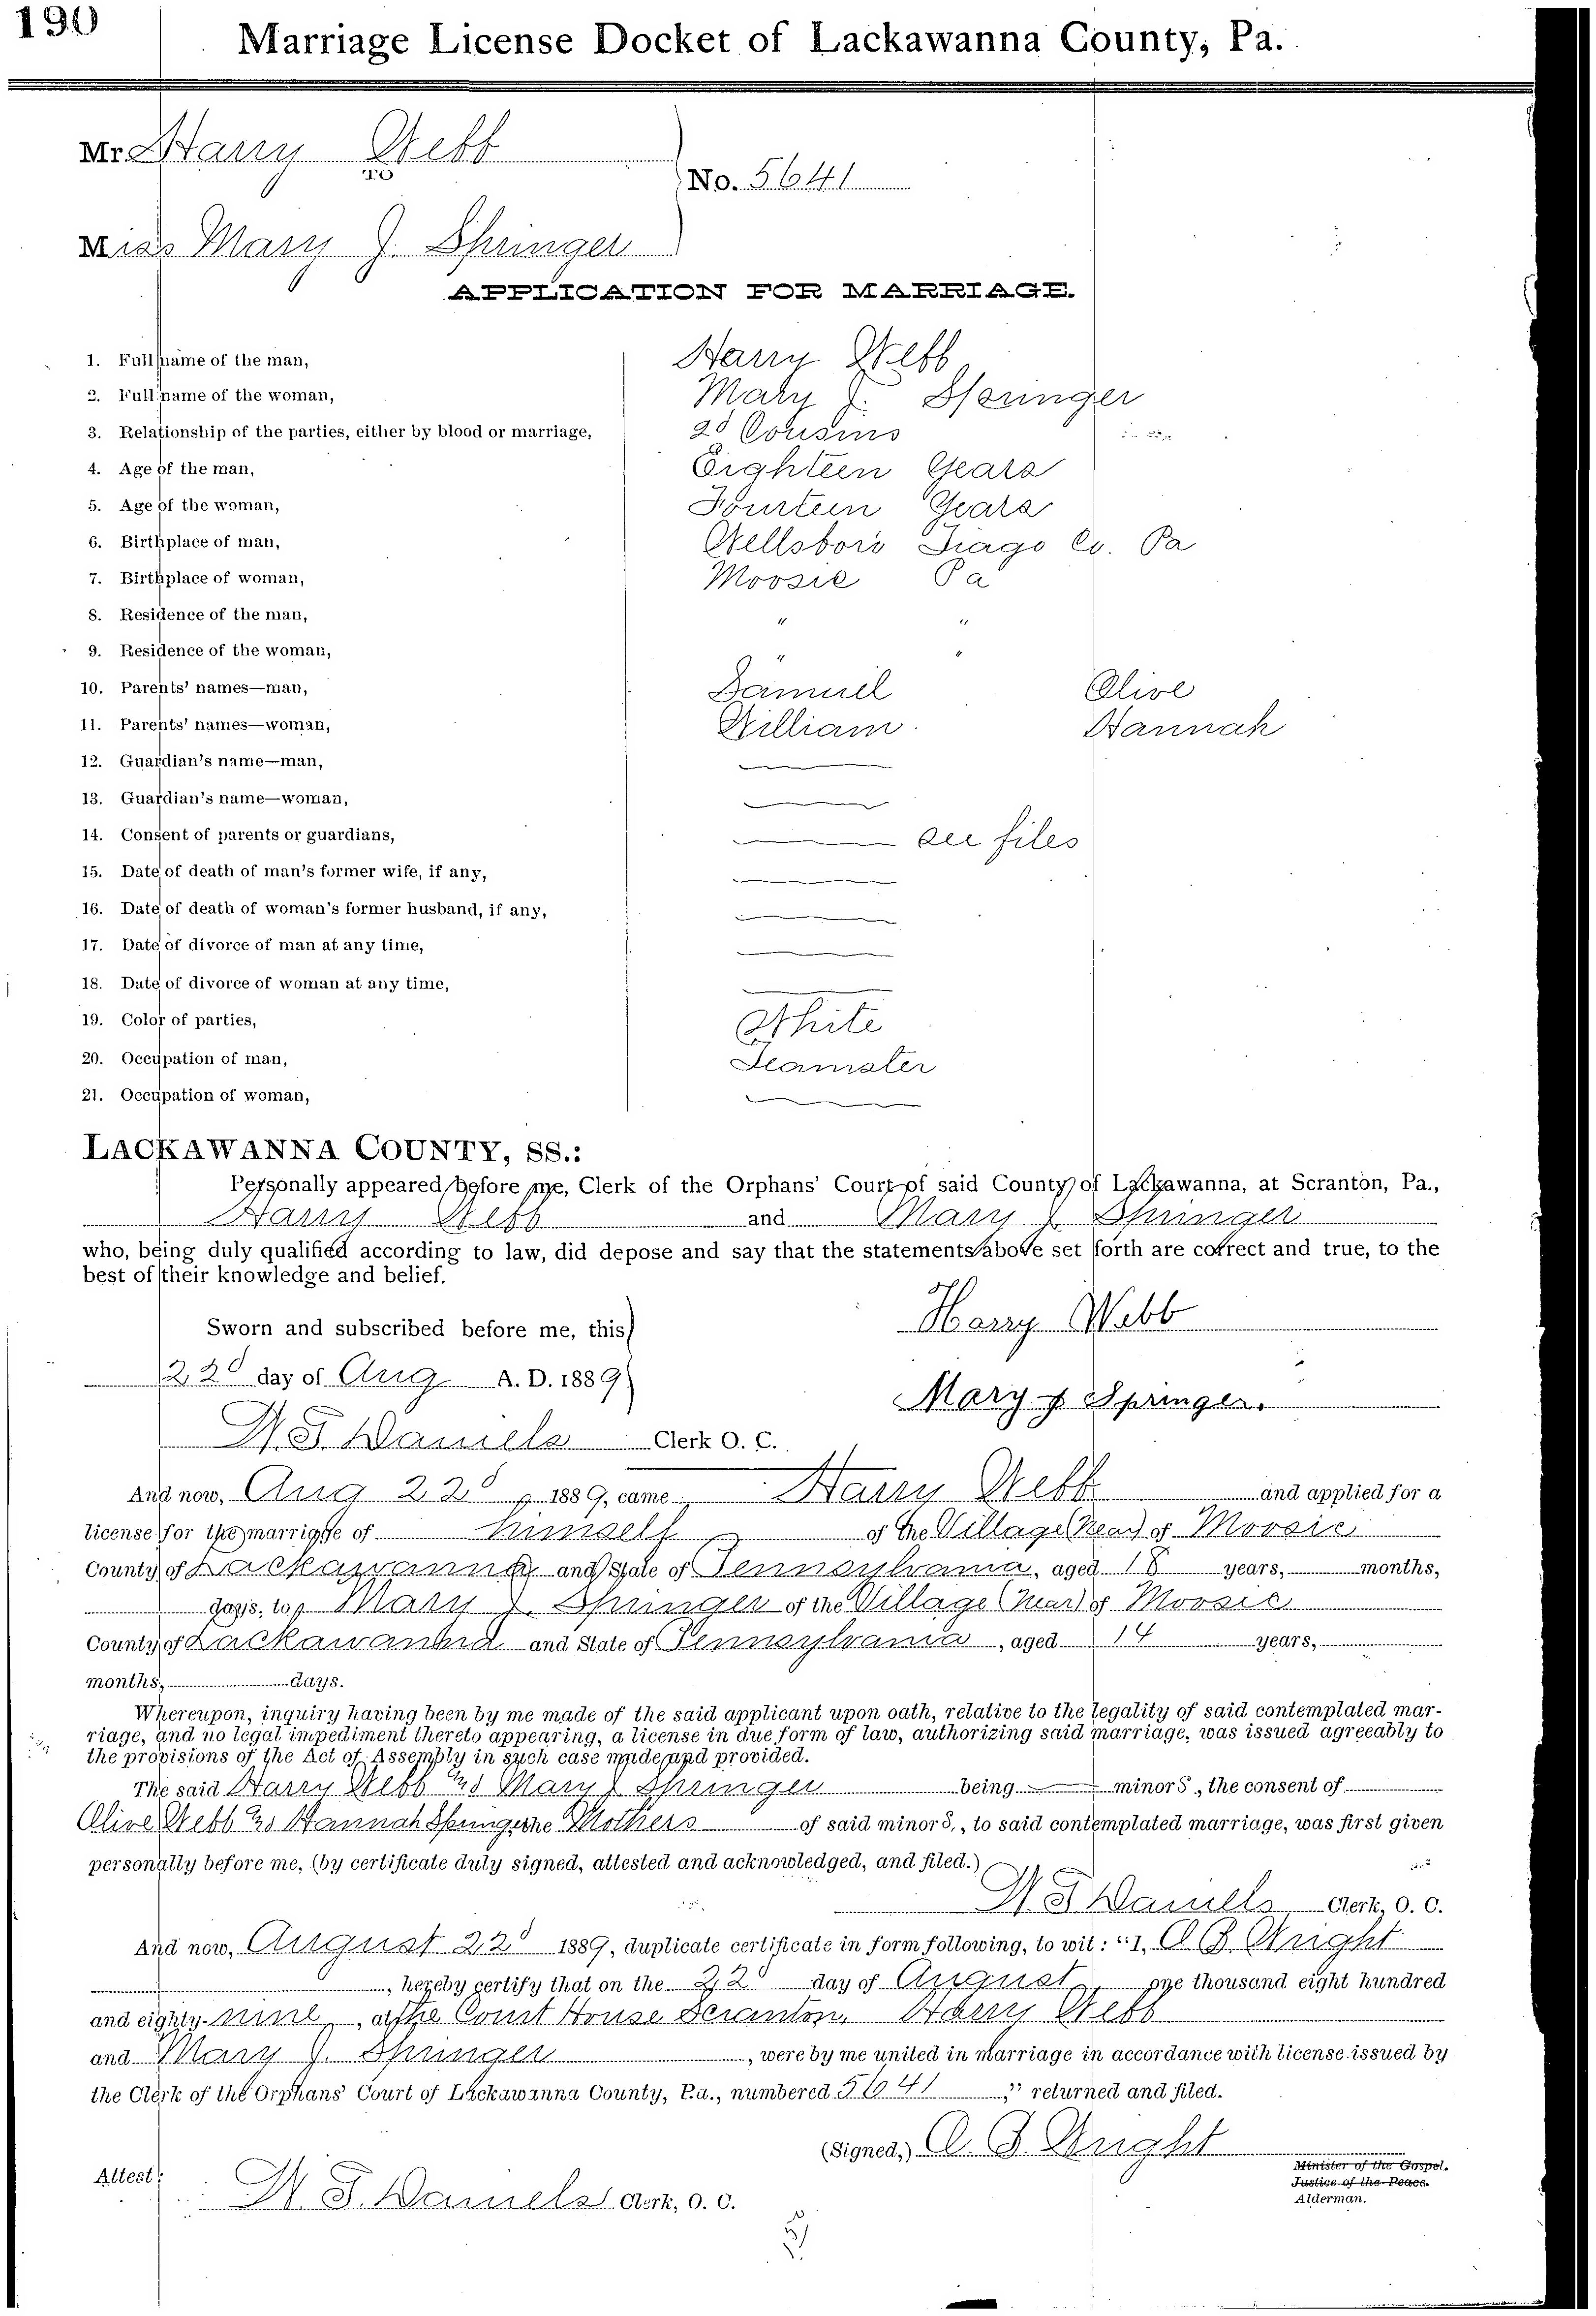 190
Marriage License Docket of Lackawanna County, Pa.
Mr. Harry Webb
TO
No. 5641
Miss Mary J. Springer
APPLICATION FOR MARRIAGE.
1. Full name of the man, Harry Webb
2. Full name of the woman, Mary J. Springer
3. Relationship of the parties, either by blood or marriage, 2d Cousins
4. Age of the man, Eighteen Years
5. Age of the woman, Fourteen Years
6. Birthplace of man, Wellsboro Tiago Co. Pa
7. Birthplace of woman, Moosic Pa
8. Residence of the man, " "
9. Residence of the woman, " "
10. Parents' names—man, Samuel Olive
11. Parents' names—woman, William Hannah
12. Guardian's name—man,
13. Guardian's name—woman,
14. Consent of parents or guardians, see files
15. Date of death of man's former wife, if any,
16. Date of death of woman's former husband, if any,
17. Date of divorce of man at any time,
18. Date of divorce of woman at any time,
19. Color of parties, White
20. Occupation of man, Teamster
21. Occupation of woman,
LACKAWANNA COUNTY, SS.:
Personally appeared before me, Clerk of the Orphans' Court of said County of Lackawanna, at Scranton, Pa.,
Harry Webb and Mary J Springer
who, being duly qualified according to law, did depose and say that the statements above set forth are correct and true, to the
best of their knowledge and belief.
Harry Webb
Sworn and subscribed before me, this
22d day of Aug A. D. 1889
Mary J Springer.
W. T. Daniels Clerk O. C.
And now, Aug 22d, 1889, came Harry Webb and applied for a
license for the marriage of himself of the Village (near) of Moosic
County of Lackawanna and State of Pennsylvania, aged 18 years, months,
days, to Mary J. Springer of the Village (near) of Moosic
County of Lackawanna and State of Pennsylvania, aged 14 years,
months, days.
Whereupon, inquiry having been by me made of the said applicant upon oath, relative to the legality of said contemplated mar-
riage, and no legal impediment thereto appearing, a license in due form of law, authorizing said marriage, was issued agreeably to
the provisions of the Act of Assembly in such case made and provided.
The said Harry Webb and Mary J Springer being minors, the consent of
Olive Webb and Hannah Springer the Mothers of said minors, to said contemplated marriage, was first given
personally before me, (by certificate duly signed, attested and acknowledged, and filed.)
W T Daniels Clerk, O. C.
And now, August 22d 1889, duplicate certificate in form following, to wit: "I, O B Wright
, hereby certify that on the 22d day of August, one thousand eight hundred
and eighty-nine, at the Court House Scranton, Harry Webb
and Mary J. Springer, were by me united in marriage in accordance with license issued by
the Clerk of the Orphans' Court of Lackawanna County, Pa., numbered 5641," returned and filed.
(Signed,) O. B. Wright
Minister of the Gospel.
Justice of the Peace.
Alderman.
Attest: W. T. Daniels Clerk, O. C.